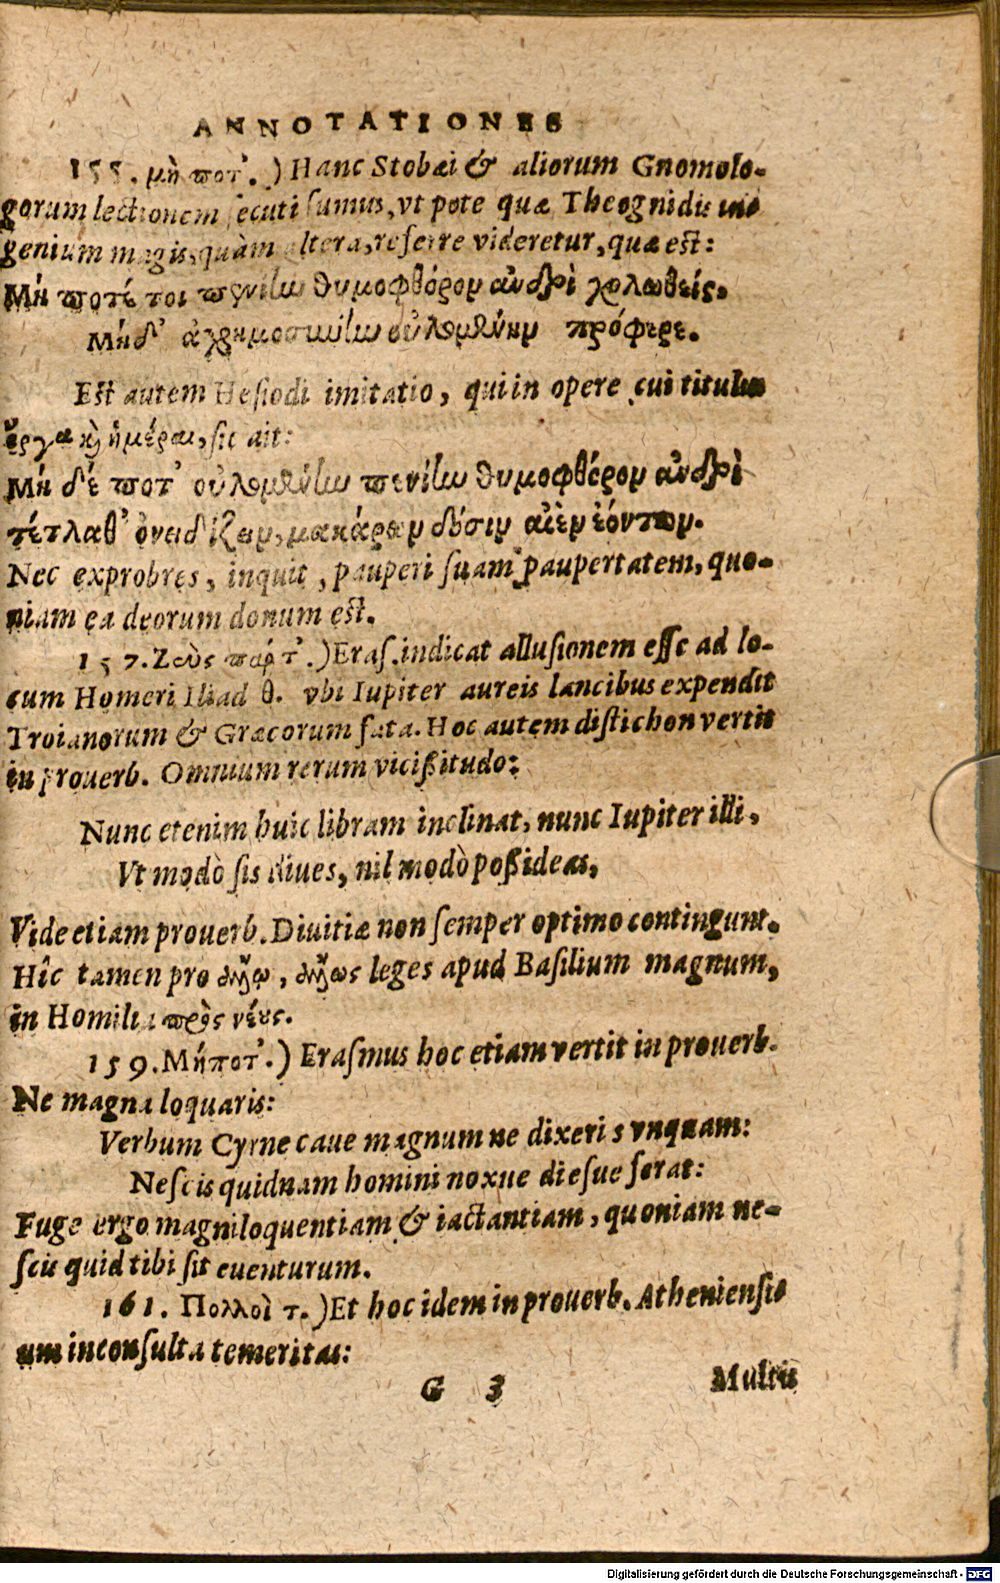 ANNOTATIONES
155. μὴ ποτ᾽.) Hanc Stobæi & aliorum Gnomolo-
gorum lectionem secuti sumus, vt pote quæ Theognidis in-
genium magis, quàm altera, referre videretur, quæ est:
Μή ποτέ τοι πενίην θυμοφθόρον ἀνδρὶ χολωθείς.
Μηδ᾽ ἀχρημοσύνην οὐλομένην πρόφερε.
Est autem Hesiodi imitatio, qui in opere cui titulus
ἔργα καὶ ἡμέραι, sic ait:
Μὴ δέ ποτ᾽ οὐλομένην πενίην θυμοφθόρον ἀνδρὶ
τέτλαθ᾽ ὀνειδίζειν, μακάρων δόσιν αἰὲν ἐόντων.
Nec exprobres, inquit, pauperi suam paupertatem, quo-
niam ea deorum donum est.
157. Ζεὺς παρ τ᾽.) Eras. indicat allusionem esse ad lo-
cum Homeri Iliad θ. vbi Iupiter aureis lancibus expendit
Troianorum & Græcorum fata. Hoc autem distichon vertit
in prouerb. Omnium rerum vicißitudo:
Nunc etenim huic libram inclinat, nunc Iupiter illi,
Vt modò sis diues, nil modò poßideas,
Vide etiam prouerb. Diuitiæ non semper optimo contingunt.
Hîc tamen pro ἄλλῳ, ἄλλως leges apud Basilium magnum,
in Homilia πρὸς νέους.
159. Μήποτ᾽.) Erasmus hoc etiam vertit in prouerb.
Ne magna loquaris:
Verbum Cyrne caue magnum ne dixeris vnquam:
Nescis quidnam homini noxue diesue ferat:
Fuge ergo magniloquentiam & iactantiam, quoniam ne-
scis quid tibi sit euenturum.
161. Πολλοὶ τ.) Et hoc idem in prouerb. Atheniensi-
um inconsulta temeritas:
G 3 Multis
Digitalisierung gefördert durch die Deutsche Forschungsgemeinschaft - DFG